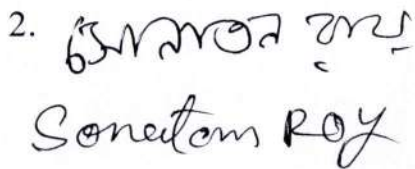 2. সোনাতন রায়
Sonatom ROY